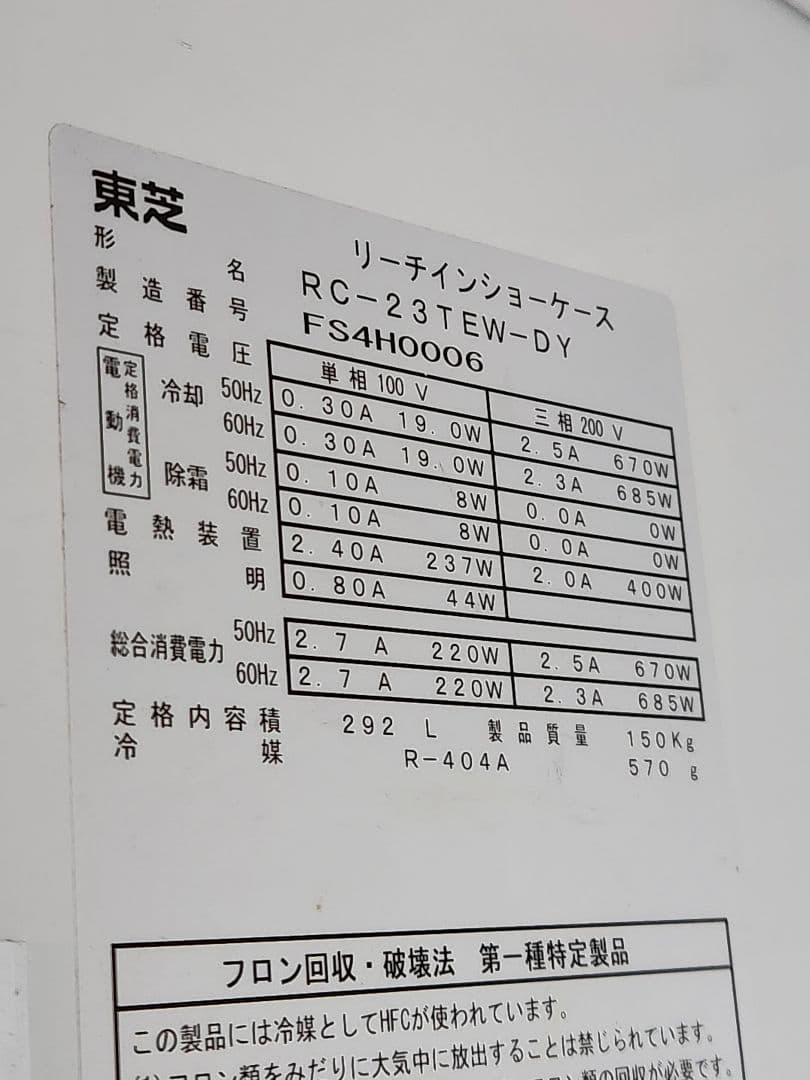 東芝
リーチインショーケース
形名 RC-23TEW-DY
製造番号 FS4H0006
定格電圧 単相100V 三相200V
電動機 定格消費電力
冷却 50Hz 0.30A 19.0W 2.5A 670W
60Hz 0.30A 19.0W 2.3A 685W
除霜 50Hz 0.10A 8W 0.0A 0W
60Hz 0.10A 8W 0.0A 0W
電熱装置 2.40A 237W 2.0A 400W
照明 0.80A 44W
総合消費電力 50Hz 2.7A 220W 2.5A 670W
60Hz 2.7A 220W 2.3A 685W
定格内容積 292L 製品質量 150Kg
冷媒 R-404A 570g
フロン回収・破壊法 第一種特定製品
この製品には冷媒としてHFCが使われています。
(1)フロン類をみだりに大気中に放出することは禁じられています。
フロン類の回収が必要です。